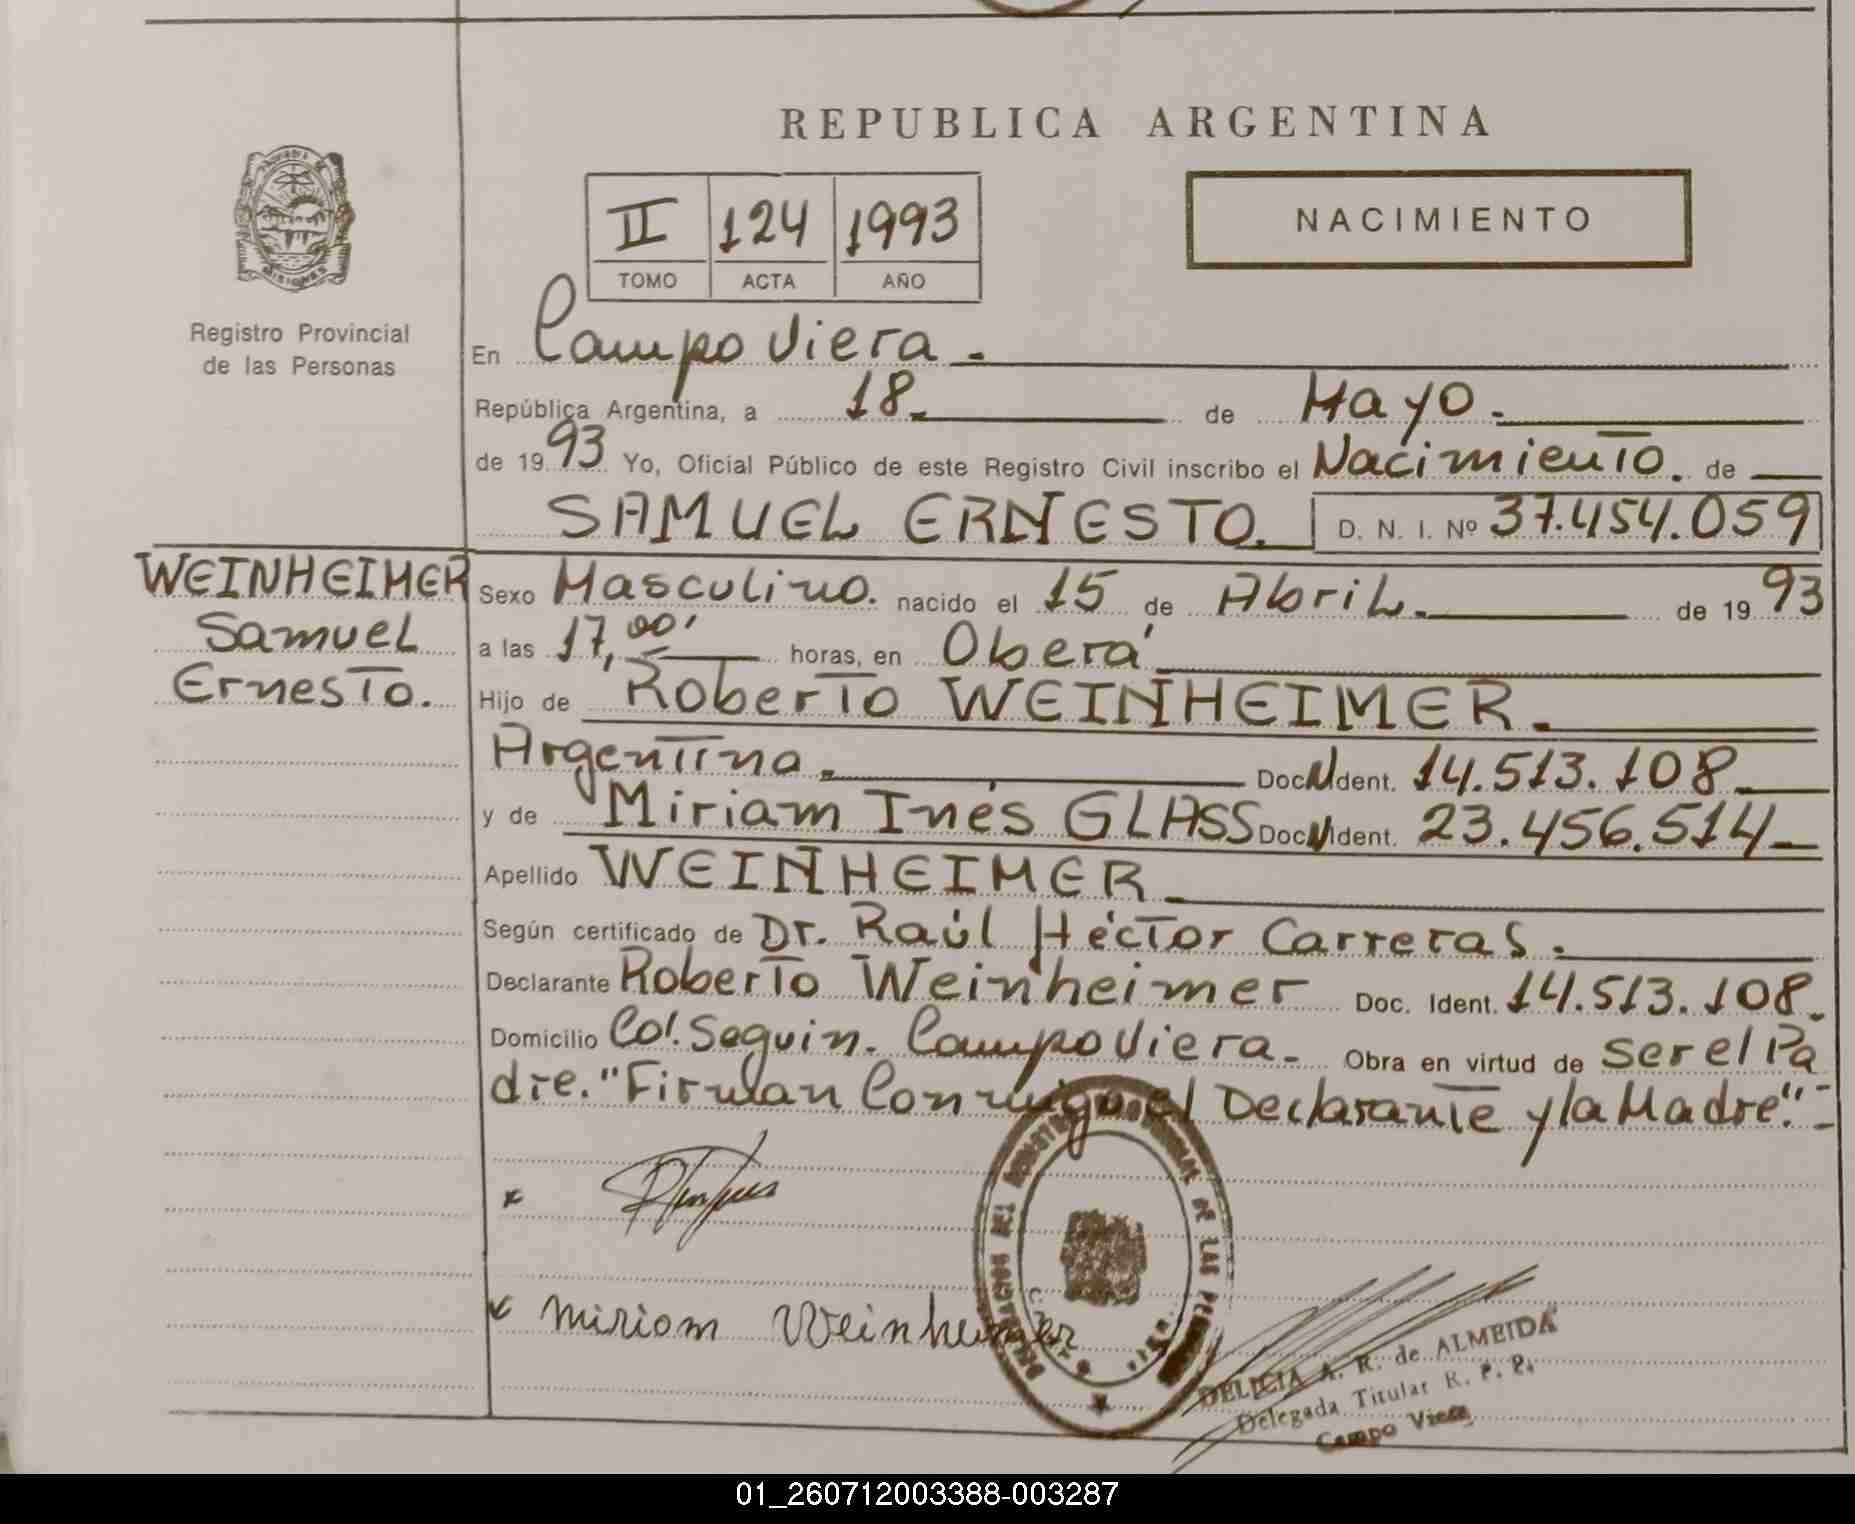 REPUBLICA ARGENTINA
II 124 1993
TOMO ACTA AÑO
NACIMIENTO
MISIONES
Registro Provincial
de las Personas
En Campo Viera.-
República Argentina, a 18.- de Mayo.-
de 1993 Yo, Oficial Público de este Registro Civil inscribo el Nacimiento. de
SAMUEL ERNESTO. D. N. I. Nº 37.454.059
WEINHEIMER
Samuel
Ernesto.
Sexo Masculino. nacido el 15 de Abril.- de 1993
a las 17,00' horas, en Oberá
Hijo de Roberto WEINHEIMER.-
Argentino.- Doc. Ident. 14.513.108
y de Miriam Inés GLASS Doc. Ident. 23.456.514
Apellido WEINHEIMER
Según certificado de Dr. Raúl Héctor Carreras.-
Declarante Roberto Weinheimer Doc. Ident. 14.513.108.
Domicilio Col. Seguin. Campo Viera.- Obra en virtud de ser el Pa
dre. "Firman Conmigo el Declarante y la Madre".-
x
x Miriam Weinheimer
DELICIA A. R. de ALMEIDA
Delegada Titular R. P. P.
Campo Viera
01_260712003388-003287